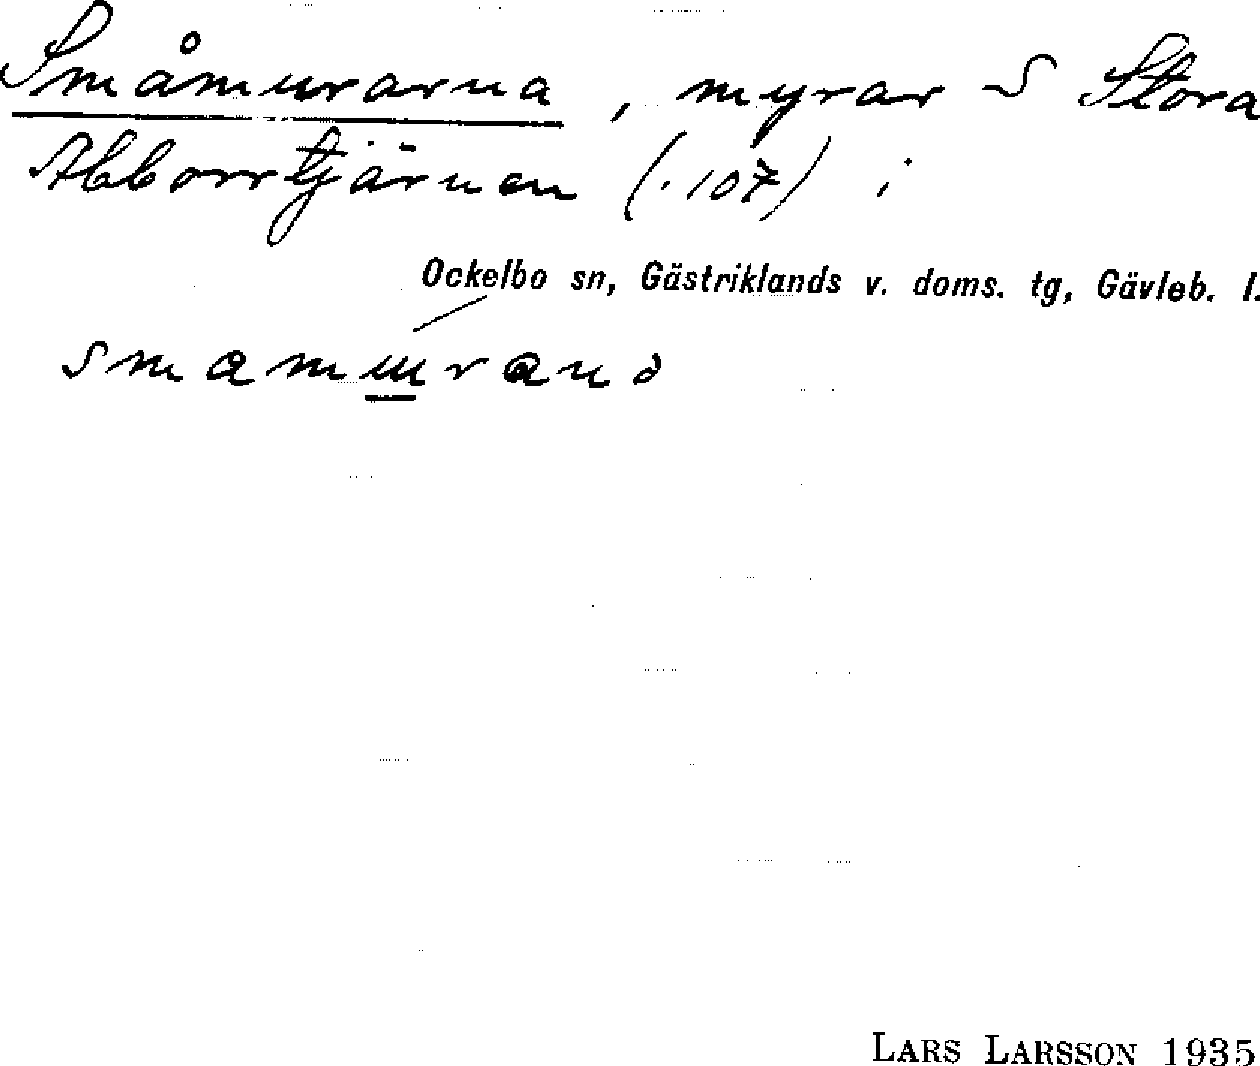 Småmurarna, myrar S Stora
Abborrtjärnen (.107) i
Ockelbo sn, Gästriklands v. doms. tg, Gävleb. l.
LARS LARSSON 1935